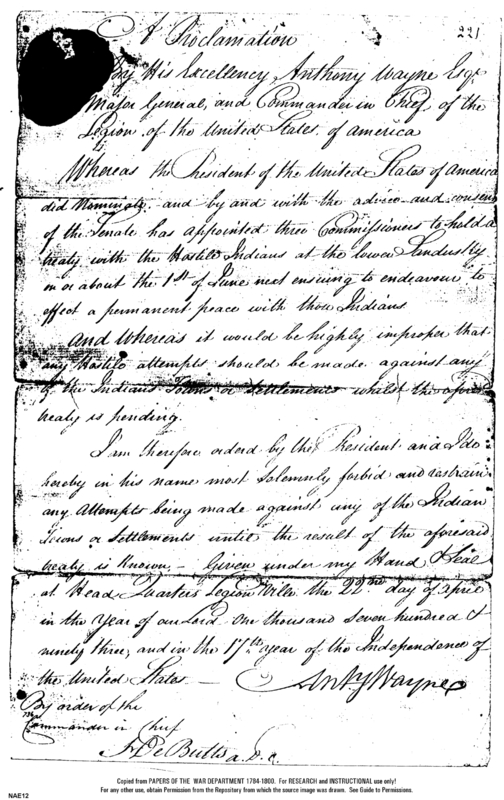 221
A Proclamation
By His Excellency Anthony Wayne Esqr.
Major General, and Commander in Chief of the
Legion of the United States of america
Whereas the President of the United States of America
did Nominate and by and with the advice and consent
of the Senate has appointed three Commissioners to hold a
treaty with the Hostile Indians at the lower Sandusky
on or about the 1st of June next ensuing to endeavour to
effect a permanent peace with those Indians
And Whereas it would be highly improper that
any Hostile attempts should be made against any
of the Indians Towns or Settlements whilst the afores
treaty is pending.
I'm therefore orderd by the President and I do
hereby in his name most Solemnly forbid and restrain
any attempts being made against any of the Indian
Towns or Settlements until the result of the aforesaid
treaty is Known — Given under my Hand & Seal
at Head Quarters Legion Ville the 22nd day of april
in the Year of our Lord One thousand seven hundred &
ninety three, and in the 17th year of the Independence of
the United States —
Anty Wayne
By order of the
Commander in Chief
H De Butts a. D. C.
Copied from PAPERS OF THE WAR DEPARTMENT 1784-1800. For RESEARCH and INSTRUCTIONAL use only!
For any other use, obtain Permission from the Repository from which the source image was drawn. See Guide to Permissions.
NAE12